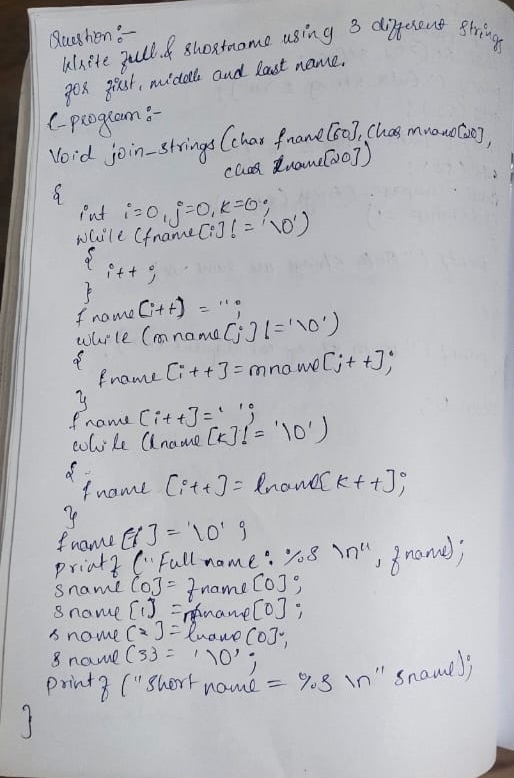 Question :-
Write full & shortname using 3 different strings
for first, middle and last name.
C program :-
Void join_strings (char fname[60], char mname[20],
char lname[20])
{
int i=0, j=0, k=0;
while (fname[i] != '\0')
{
i++;
}
fname[i++] = ' ';
while (mname[j] != '\0')
{
fname[i++] = mname[j++];
}
fname[i++] = ' ';
while (lname[k] != '\0')
{
fname [i++] = lname[k++];
}
fname[i] = '\0';
printf ("Full name: %s \n", fname);
sname[0] = fname[0];
sname[1] = mname[0];
sname[2] = lname[0];
sname[3] = '\0';
printf ("Short name = %s \n" sname);
}